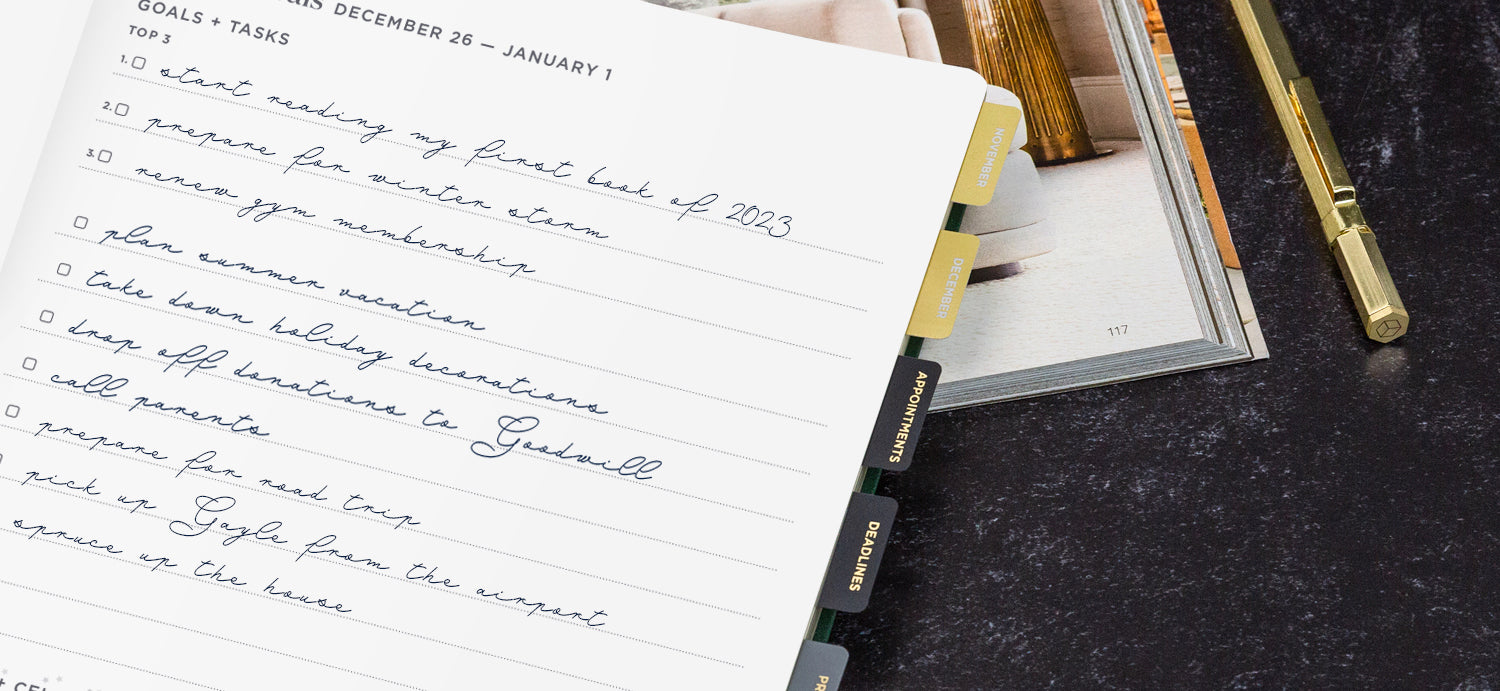 DECEMBER 26 — JANUARY 1
GOALS + TASKS
TOP 3
1. start reading my first book of 2023
2. prepare for winter storm
3. renew gym membership
plan summer vacation
take down holiday decorations
drop off donations to Goodwill
call parents
prepare for road trip
pick up Gayle from the airport
spruce up the house
NOVEMBER
DECEMBER
APPOINTMENTS
DEADLINES
117